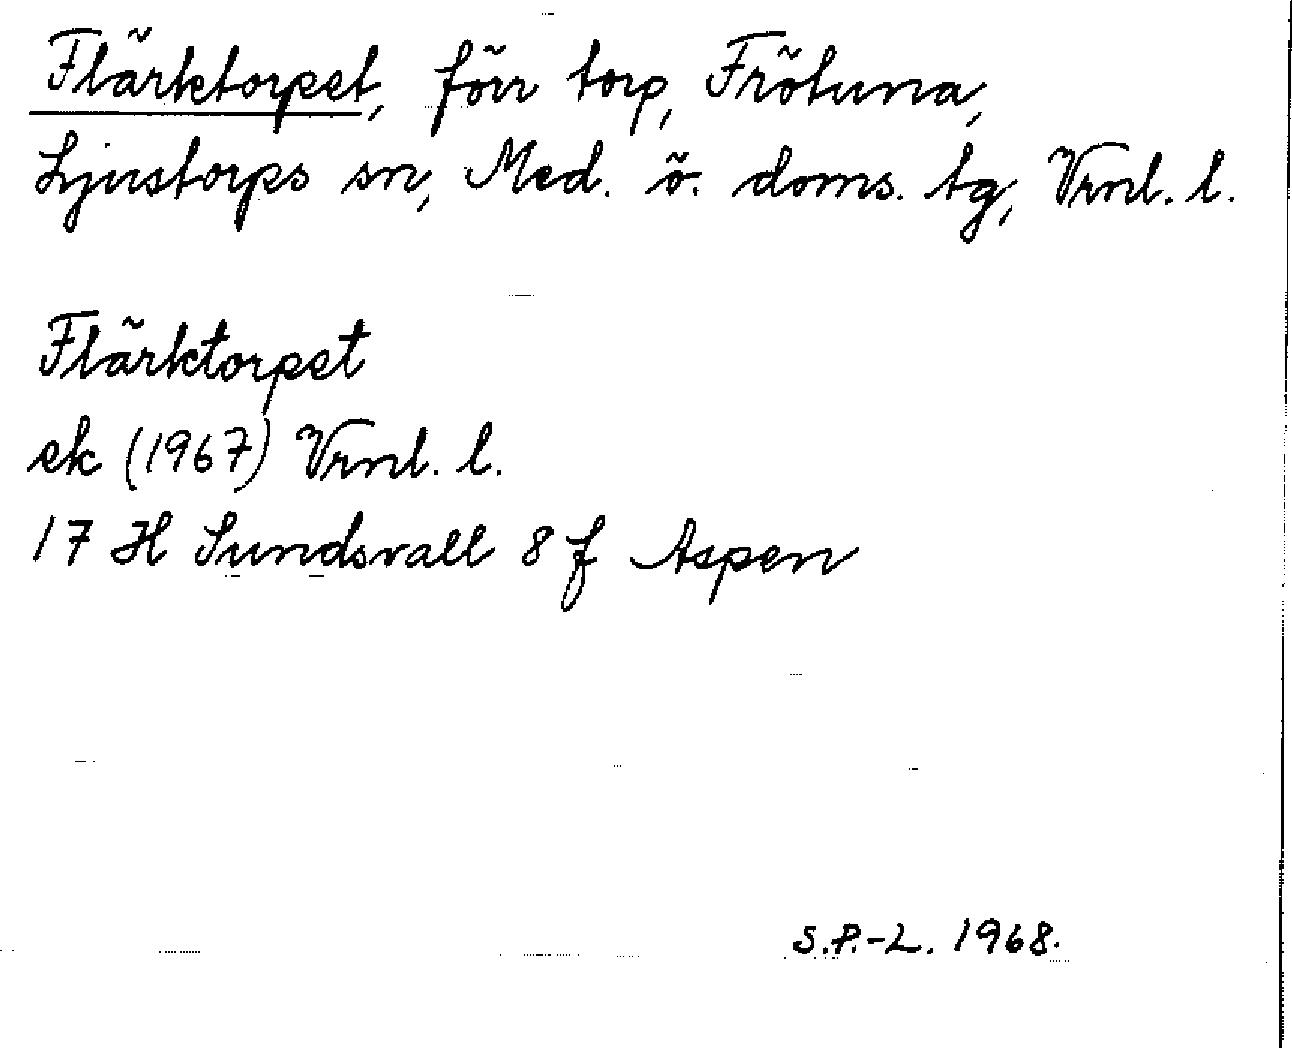 Flärktorpet, förr torp, Frötuna,
Ljustorps sn, Med. ö. doms. tg, Vrnl. l.
Flärktorpet
ek (1967) Vrnl. l.
17 H Sundsvall 8 f Aspen
S.P.-L. 1968.